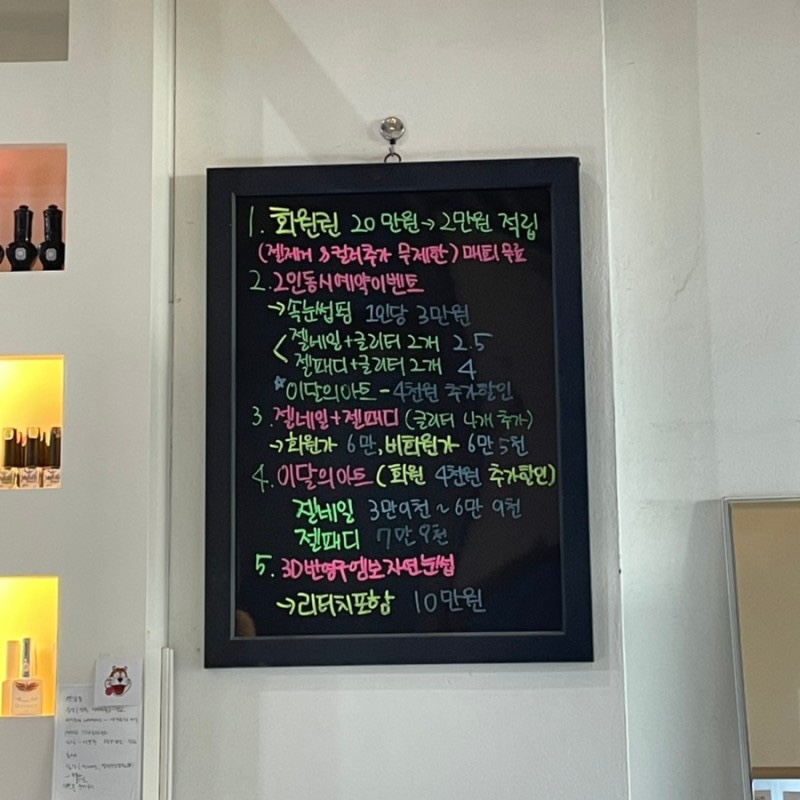 1. 회원권 20만원→2만원 적립
(젤제거 & 컬러추가 무제한) 매티 무료
2. 2인동시예약이벤트
→속눈썹펌 1인당 3만원
젤네일+글리터 2개 2.5
젤패디+글리터 2개 4
☆이달의아트 - 4천원 추가할인
3. 젤네일+젤패디 (글리터 4개 추가)
→회원가 6만, 비회원가 6만 5천
4. 이달의아트 (회원 4천원 추가할인)
젤네일 3만9천~6만 9천
젤패디 7만 9천
5. 3D반영구엠보자연눈썹
→리터치포함 10만원